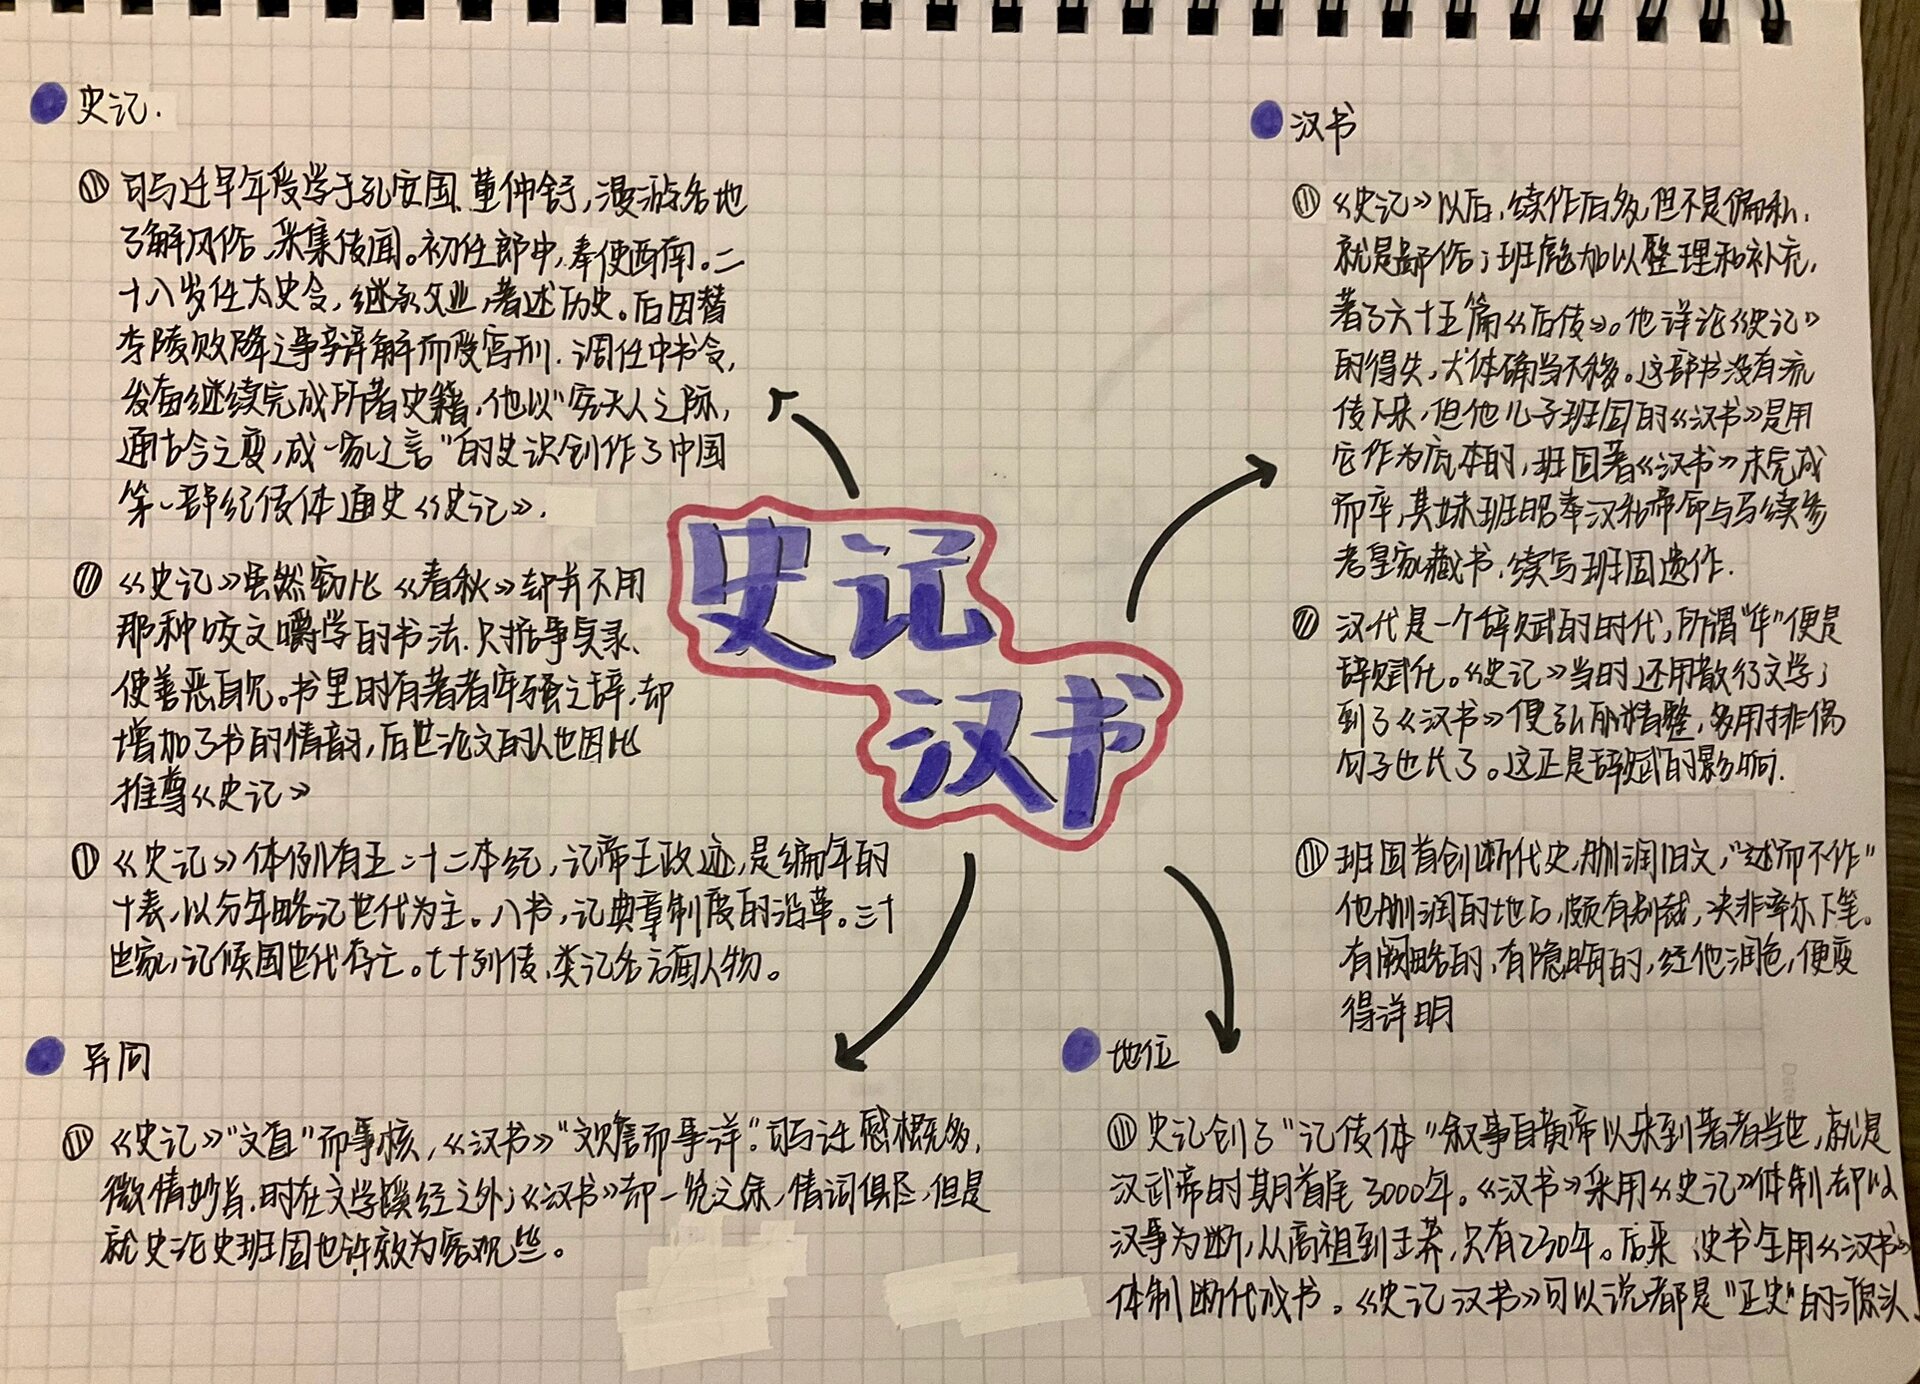 史记.
① 司马迁早年受学于孔安国、董仲舒，漫游各地
了解风俗，采集传闻。初任郎中，奉使西南。二
十八岁任太史令，继承父业，著述历史。后因替
李陵败降之事辩解而受宫刑.调任中书令，
发奋继续完成所著史籍，他以“穷天人之际，
通古今之变，成一家之言”的史识创作了中国
第一部纪传体通史《史记》.
② 《史记》虽然窃比《春秋》却并不用
那种咬文嚼字的书法.只据事实录、
使善恶自见。书里的有著者牢骚之辞，却
增加了书的情韵，后世论文的人也因此
推尊《史记》
① 《史记》体例有五 二十二本纪，记帝王政迹，是编年的
十表，以分年略记世代为主。八书，记典章制度的沿革。三十
世家，记候国世代存亡。七十列传、类记各方面人物。
史记
汉书
汉书
① 《史记》以后，续作后多，但不是偏私.
就是鄙俗；班彪加以整理和补充，
著了六十五篇《后传》。他详论《史记》
的得失，大体确当不移。这部书没有流
传下来，但他儿子班固的《汉书》是用
它作为底本的，班固著《汉书》未完成
而卒，其妹班昭奉汉和帝命与马续参
考皇家藏书，续写班固遗作.
② 汉代是一个辞赋的时代，所谓“华”便是
辞赋化。《史记》当时还用散行文学；
到了《汉书》便弘丽精整，多用排偶
句子也长了。这正是辞赋的影响.
③ 班固首创断代史，删润旧文，“述而不作”
他删润的地方，颇有别裁，决非率尔下笔。
有阙略的，有隐晦的，经他润色，便变
得详明
异同
① 《史记》“文直”而事核，《汉书》“文赡而事详”.司马迁感慨多，
微情妙旨.时在文学蹊径之外；《汉书》却一览之余，情词俱尽，但是
就史论史班固也许较为客观些。
地位
① 史记创了“记传体”叙事自黄帝以来到著者当世，就是
汉武帝的时期首尾3000年。《汉书》采用《史记》体制却以
汉事为断，从高祖到王莽，只有230年。后来 史书全用《汉书》
体制断代成书。《史记汉书》可以说都是“正史”的源头.